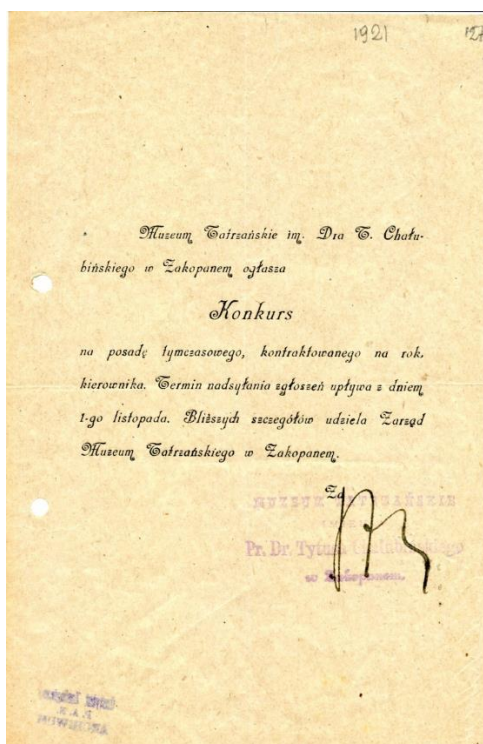 1921
127
Muzeum Tatrzańskie im. Dra T. Chału-
bińskiego w Zakopanem ogłasza
Konkurs
na posadę tymczasowego, kontraktowanego na rok,
kierownika. Termin nadsyłania zgłoszeń upływa z dniem
1-go listopada. Bliższych szczegółów udziela Zarząd
Muzeum Tatrzańskiego w Zakopanem.
Za
MUZEUM TATRZAŃSKIE
Pr. Dr. Tytusa Chałubińskiego
w Zakopanem.
ARCHIWUM